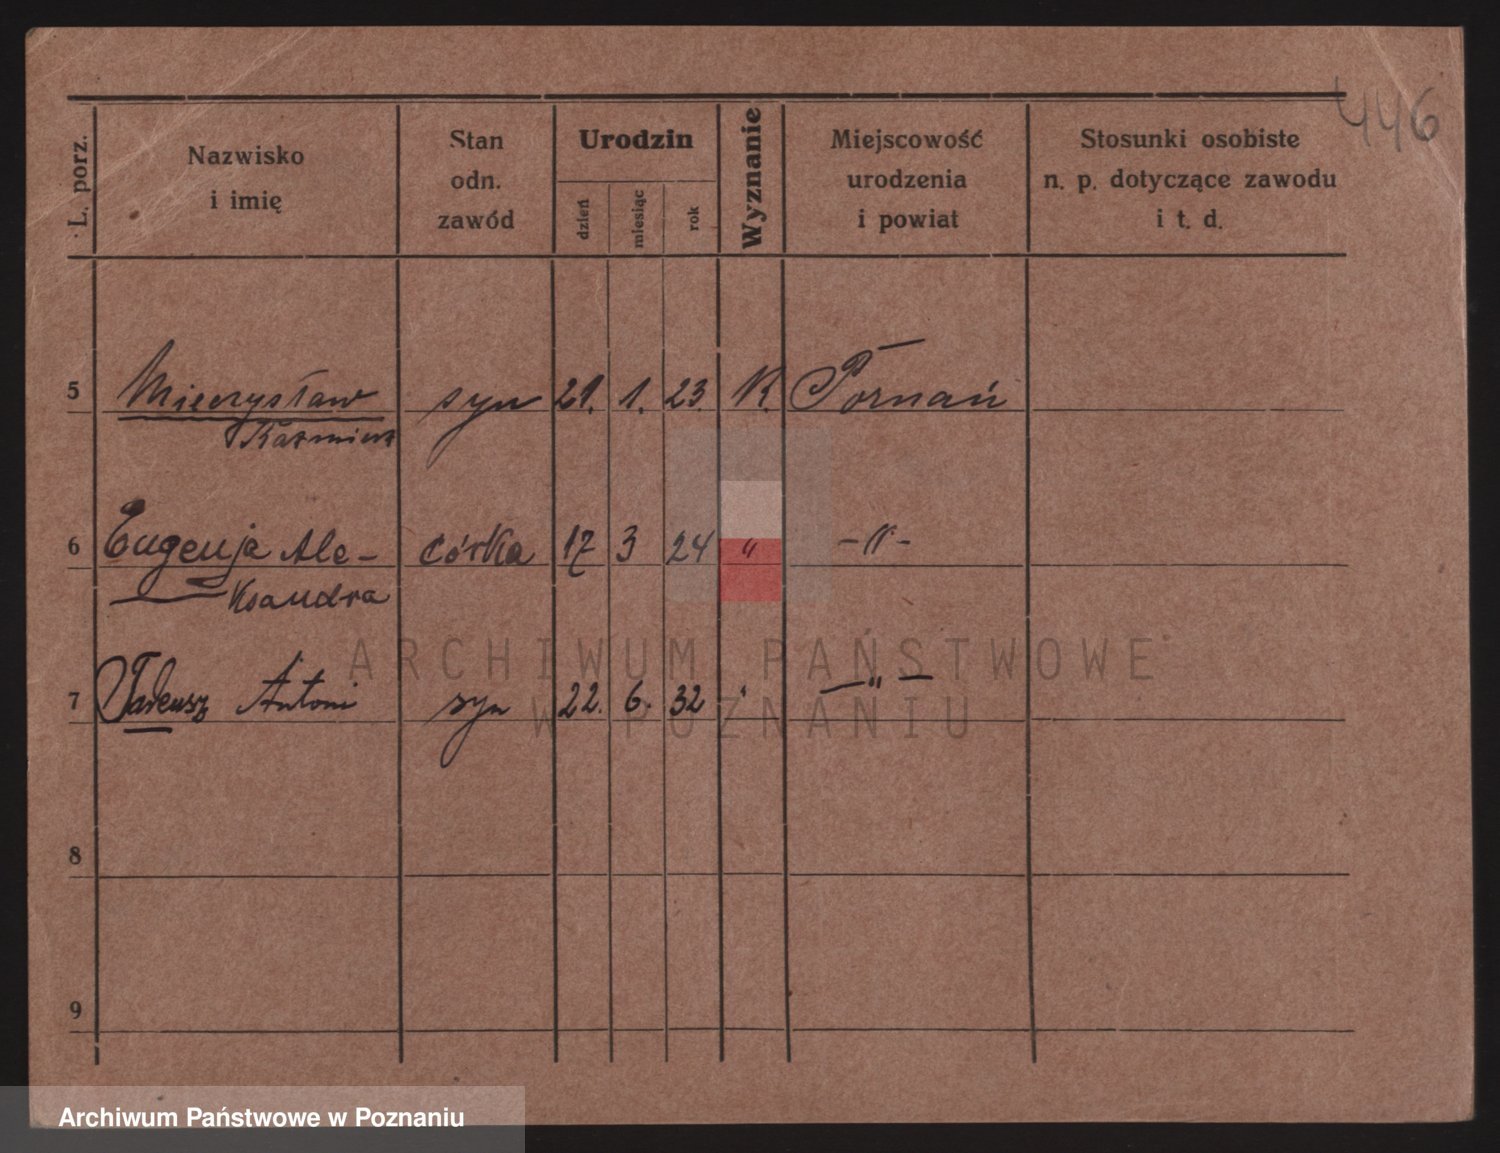 446
L. porz.
Nazwisko
i imię
Stan
odn.
zawód
Urodzin
dzień
miesiąc
rok
Wyznanie
Miejscowość
urodzenia
i powiat
Stosunki osobiste
n. p. dotyczące zawodu
i t. d.
5 Mieczysław syn 21. 1. 23. K. Poznań
Kazimierz
6 Eugenja Ale- córka 17 3 24 " -"-
ksandra
7 Tadeusz Antoni syn 22. 6. 32 " -"-
8
9
ARCHIWUM PAŃSTWOWE
W POZNANIU
Archiwum Państwowe w Poznaniu